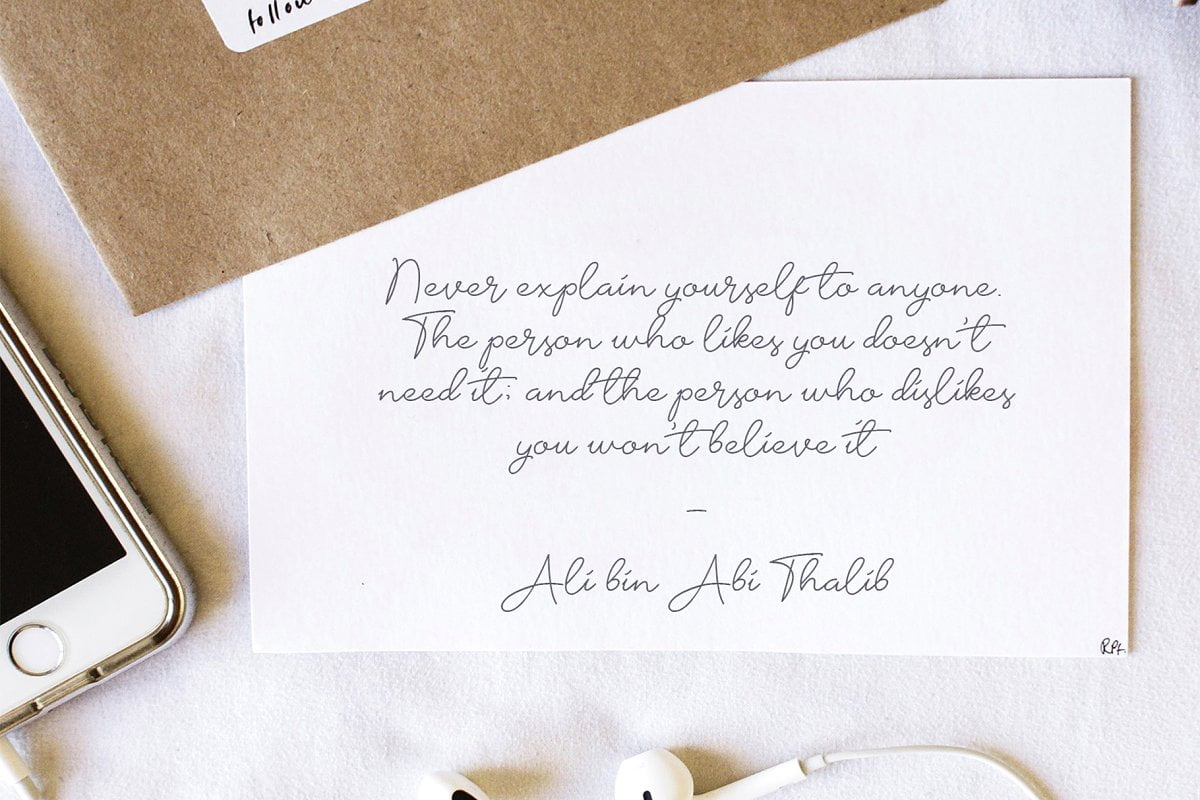 follow
Never explain yourself to anyone.
The person who likes you doesn't
need it; and the person who dislikes
you won't believe it
–
Ali bin Abi Thalib